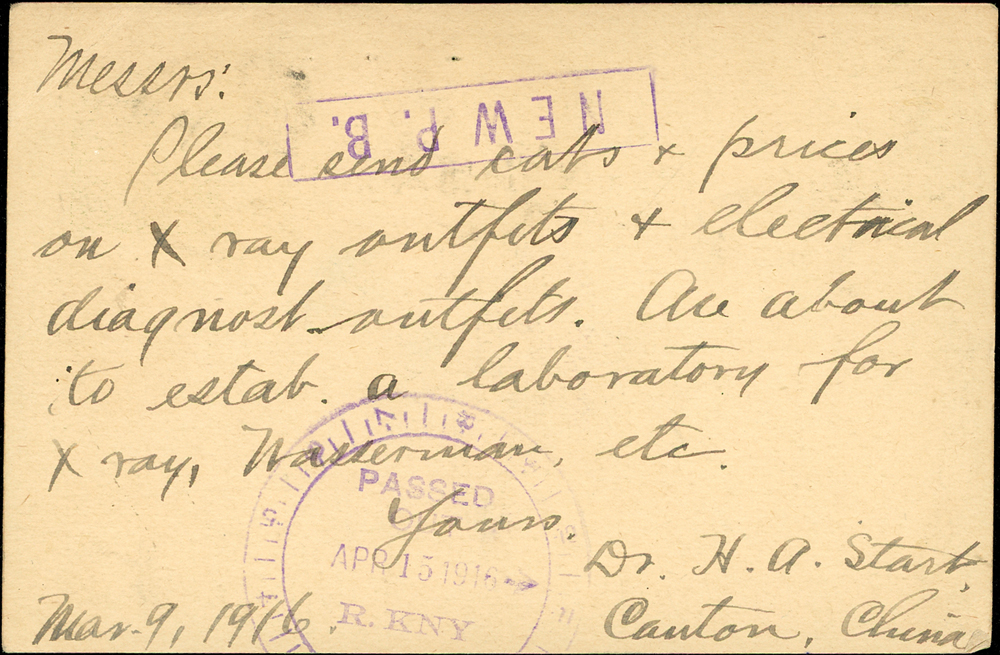 Messrs:
NEW P. B.
Please send cats & prices
on X ray outfits & electrical
diagnost. outfits. Are about
to estab. a laboratory for
X ray, Wasserman, etc.
Yours.
Dr. H. A. Start,
Canton, China
Mar. 9, 1916.
PASSED
OUT
APR 15 1916
R. KNY